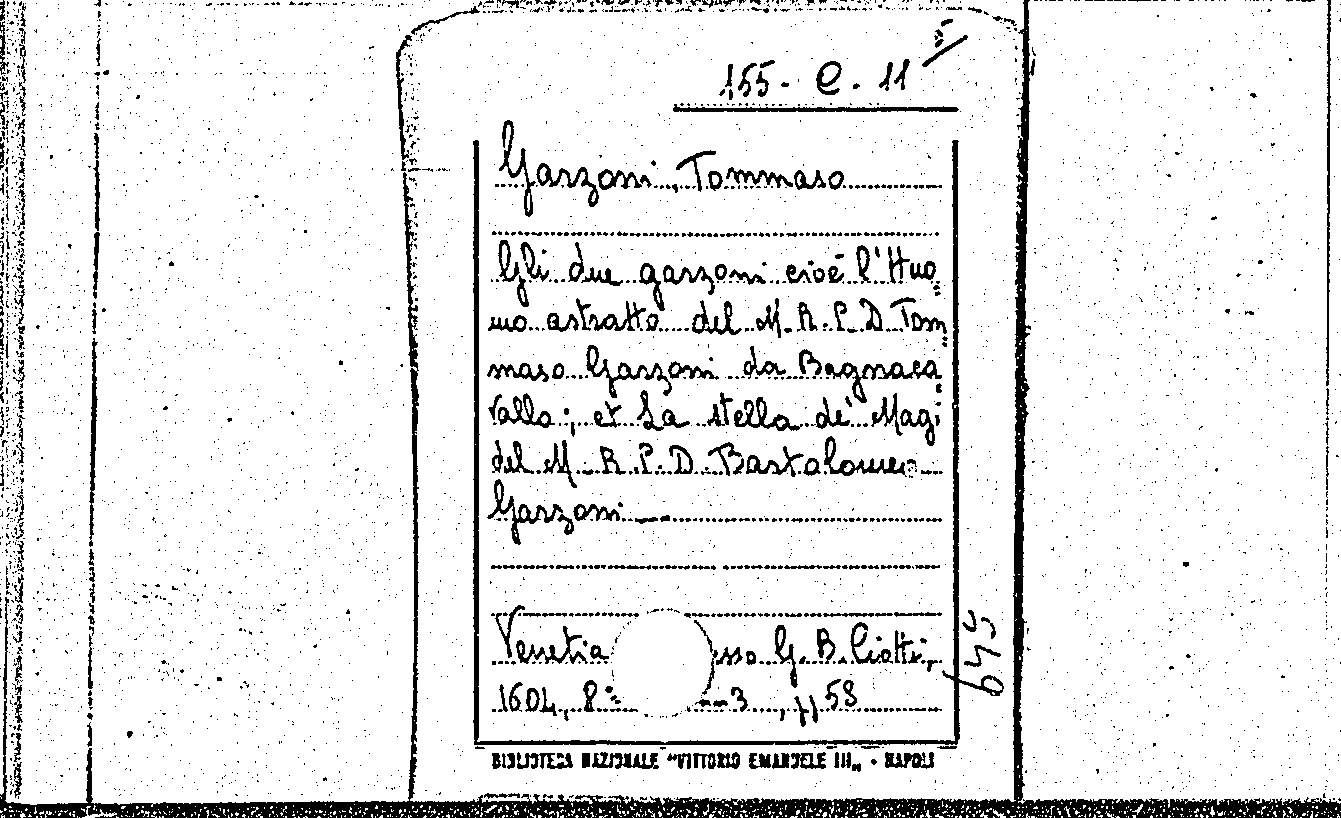 155- C. 11
Garzoni, Tommaso
Gli due garzoni cioè l'Huo
mo astratto del M. R. P. D Tom
maso Garzoni da Bagnaca
vallo; et La stella de' Magi
del M. R P. D. Bartolomeo
Garzoni
Venetia sso G. B. Ciotti,
1604, 8° 3 , 58
649
BIBLIOTECA NAZIONALE "VITTORIO EMANUELE III„ - NAPOLI